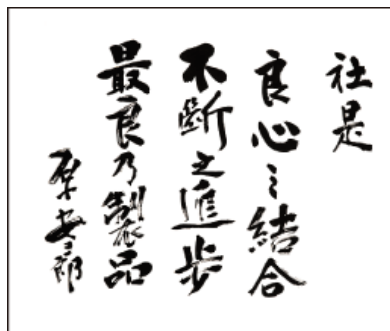 社是
良心之結合
不斷之進步
最良乃製品
原安三郎